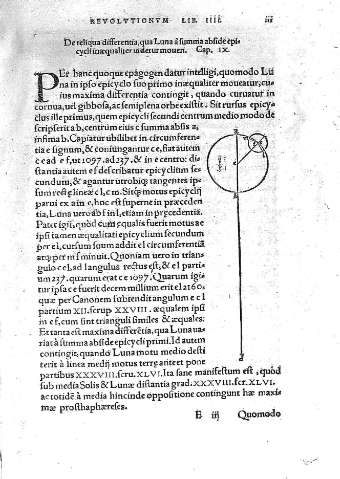 REVOLVTIONVM LIB. IIII.
De reliqua differentia, qua Luna à summa abside epi-
cycli inæqualiter uidetur moueri. Cap. IX.
Per hanc quoque epagogen datur intelligi, quomodo Lu
na in ipso epicyclo suo primo inæqualiter moueatur, cu-
ius maxima differentia contingit, quando curuatur in
cornua, uel gibbosa, ac semiplena orbe existit. Sit rursus epicy-
clus ille primus, quem epicycli secundi centrum medio modo de
scripserit a b, centrum eius c summa absis a,
infima b. Capiatur ubilibet in circumferen-
tia e signum, & coniungantur c e, fiat autem
c e ad e f, ut 1097. ad 237. & in e centro: di-
stantia autem e f describatur epicyclium se-
cundum, & agantur utrobique tangentes ip-
sum rectæ lineæ c l, c m. Sitque motus epicyclij
parui ex a in e, hoc est superne in præceden-
tia, Luna uero ab f in l, etiam in præcedentia.
Patet igitur, quod cum æqualis fuerit motus a e
ipsi tamen æqualitati epicyclium secundum
per e l, cursum suum addit e l circumferentiã
atque per m f minuit. Quoniam uero in trian-
gulo c e l, ad l angulus rectus est, & e l partium
237. quarum erat c e 1097. Quarum igi-
tur ipsa c e fuerit decem millium erit e l 2160
quæ per Canonem subtendit angulum e c l
partium XII. scrup. XXVIII. æqualem ipsi
m c f, cum sint trianguli similes & æquales:
Et tanta est maxima differẽtia, qua Luna ua-
riat à summa abside epicycli primi. Id autem
contingit, quando Luna motu medio desti
terit à linea medij motus terræ ante et pone
partibus XXXVIII. scru. XLVI. Ita sane manifestum est, quod
sub media Solis & Lunæ distantia grad. XXXVIII. scr. XLVI.
ac totidẽ à media hincinde oppositione contingunt hæ maxi-
mæ prosthaphæreses.
E iij Quomodo